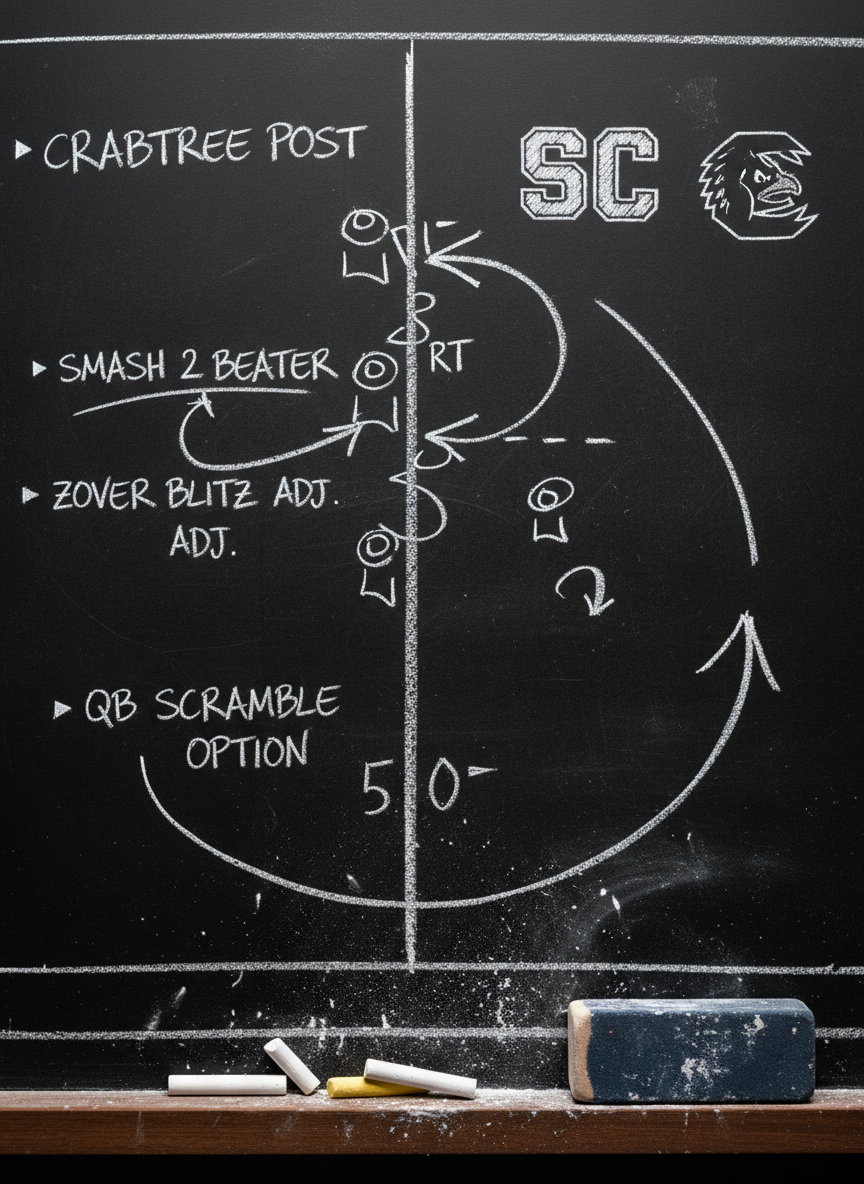 CRABTREE POST
SC
SMASH 2 BEATER
RT
ZOVER BLITZ ADJ.
ADJ.
QB SCRAMBLE
OPTION
50